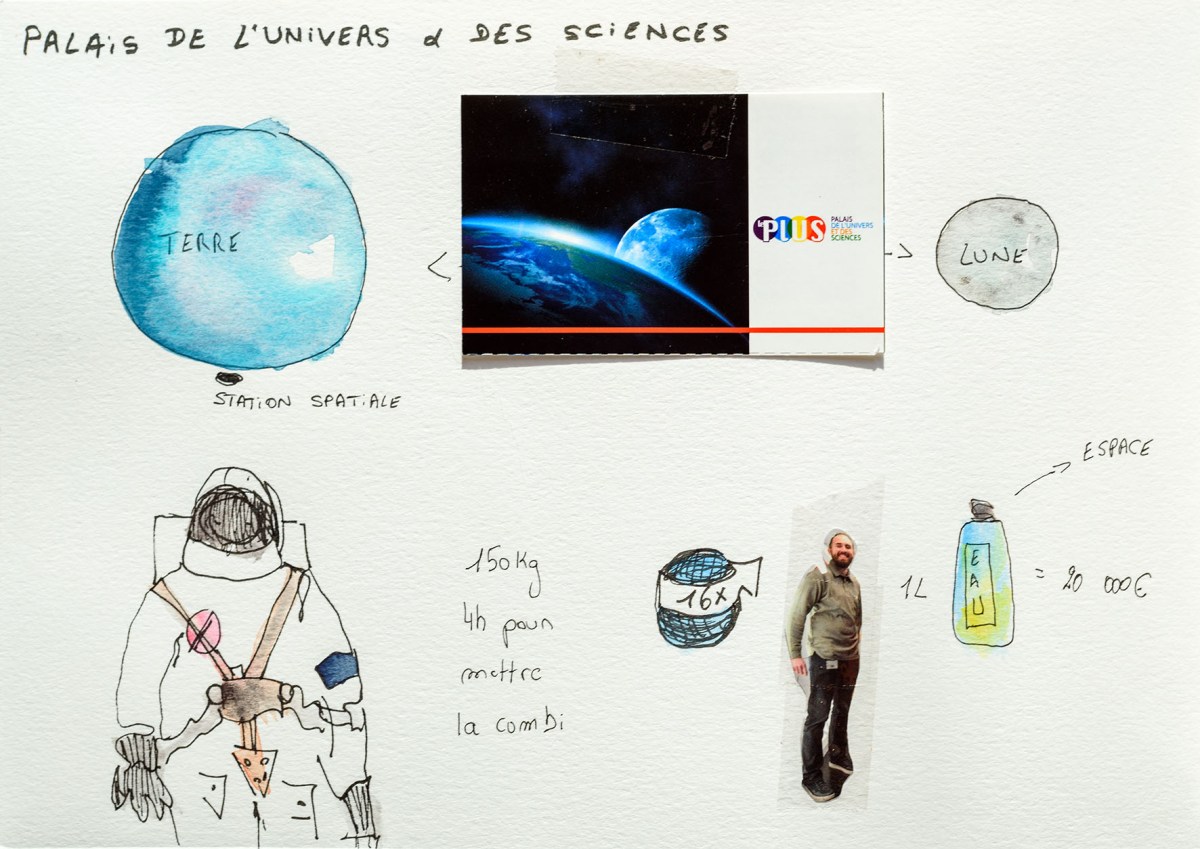 PALAIS DE L'UNIVERS & DES SCIENCES
TERRE
PLUS
PALAIS
DE L'UNIVERS
ET DES
SCIENCES
LUNE
STATION SPATIALE
ESPACE
150kg
4h pour
mettre
la combi
16x
1L
EAU
= 20 000€